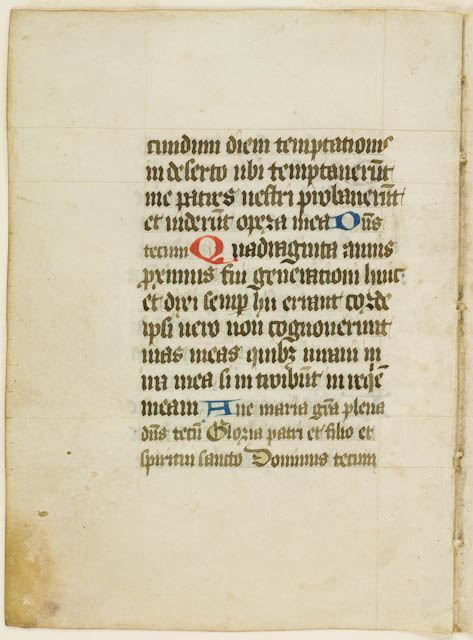 cundum diem temptationis
in deserto ubi temptauerūt
me patres uestri probauerūt
et uiderūt opera mea Dn̄s
tecum Quadraginta annis
proximus fui generationi huic
et dixi semp hii errant corde
ipsi uero non cognouerunt
uias meas quibꝫ iuraui in
ira mea si introibūt in reqͥē
meam Aue maria gr̄a plena
dn̄s tecū Gloria patri et filio et
spiritui sancto Dominus tecum